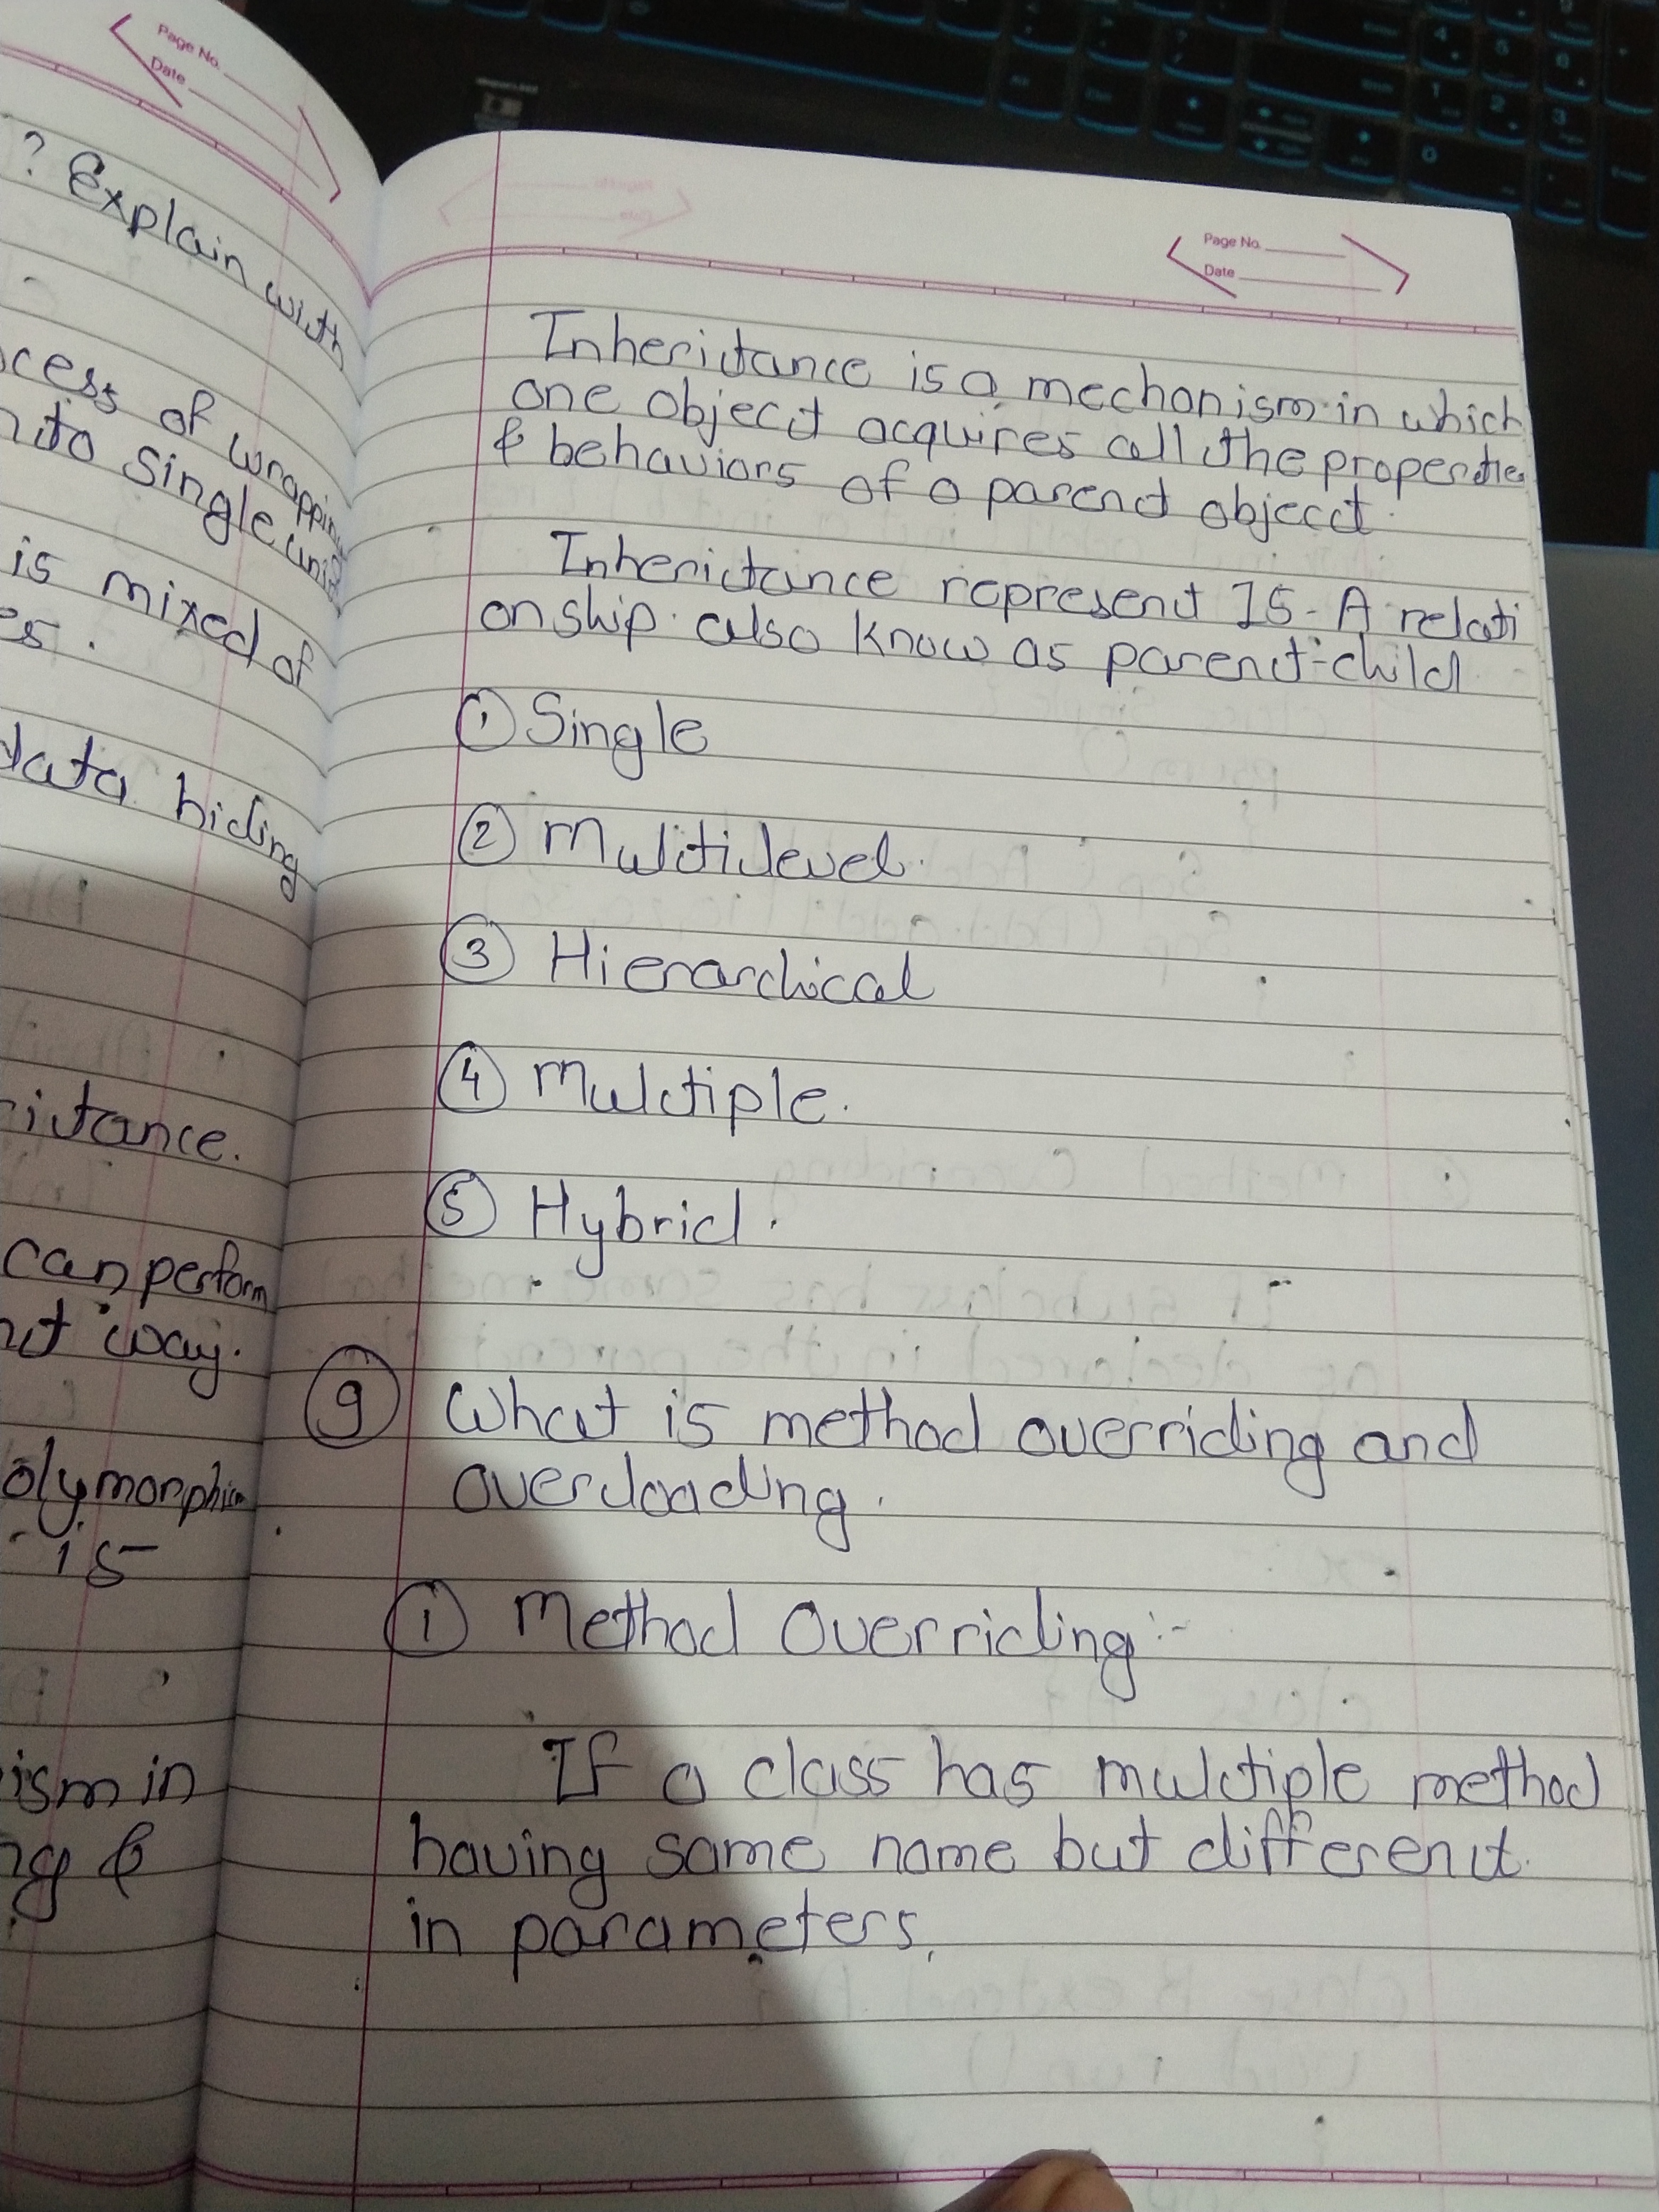 Page No.
Date
? Explain with
of wrapping
nto single unit
is mixed of
data hiding
can perform
way.
is
Page No.
Date
Inheritance is a mechanism in which
one object acquires all the properties
& behaviors of a parent object.
Inheritance represent IS-A relati
onship. also know as parent-child
① Single
② Multilevel.
③ Hierarchical
④ Multiple.
⑤ Hybrid.
⑨ What is method overriding and
overloading.
① Method Overriding:-
If a class has multiple method
having same name but different.
in parameters.